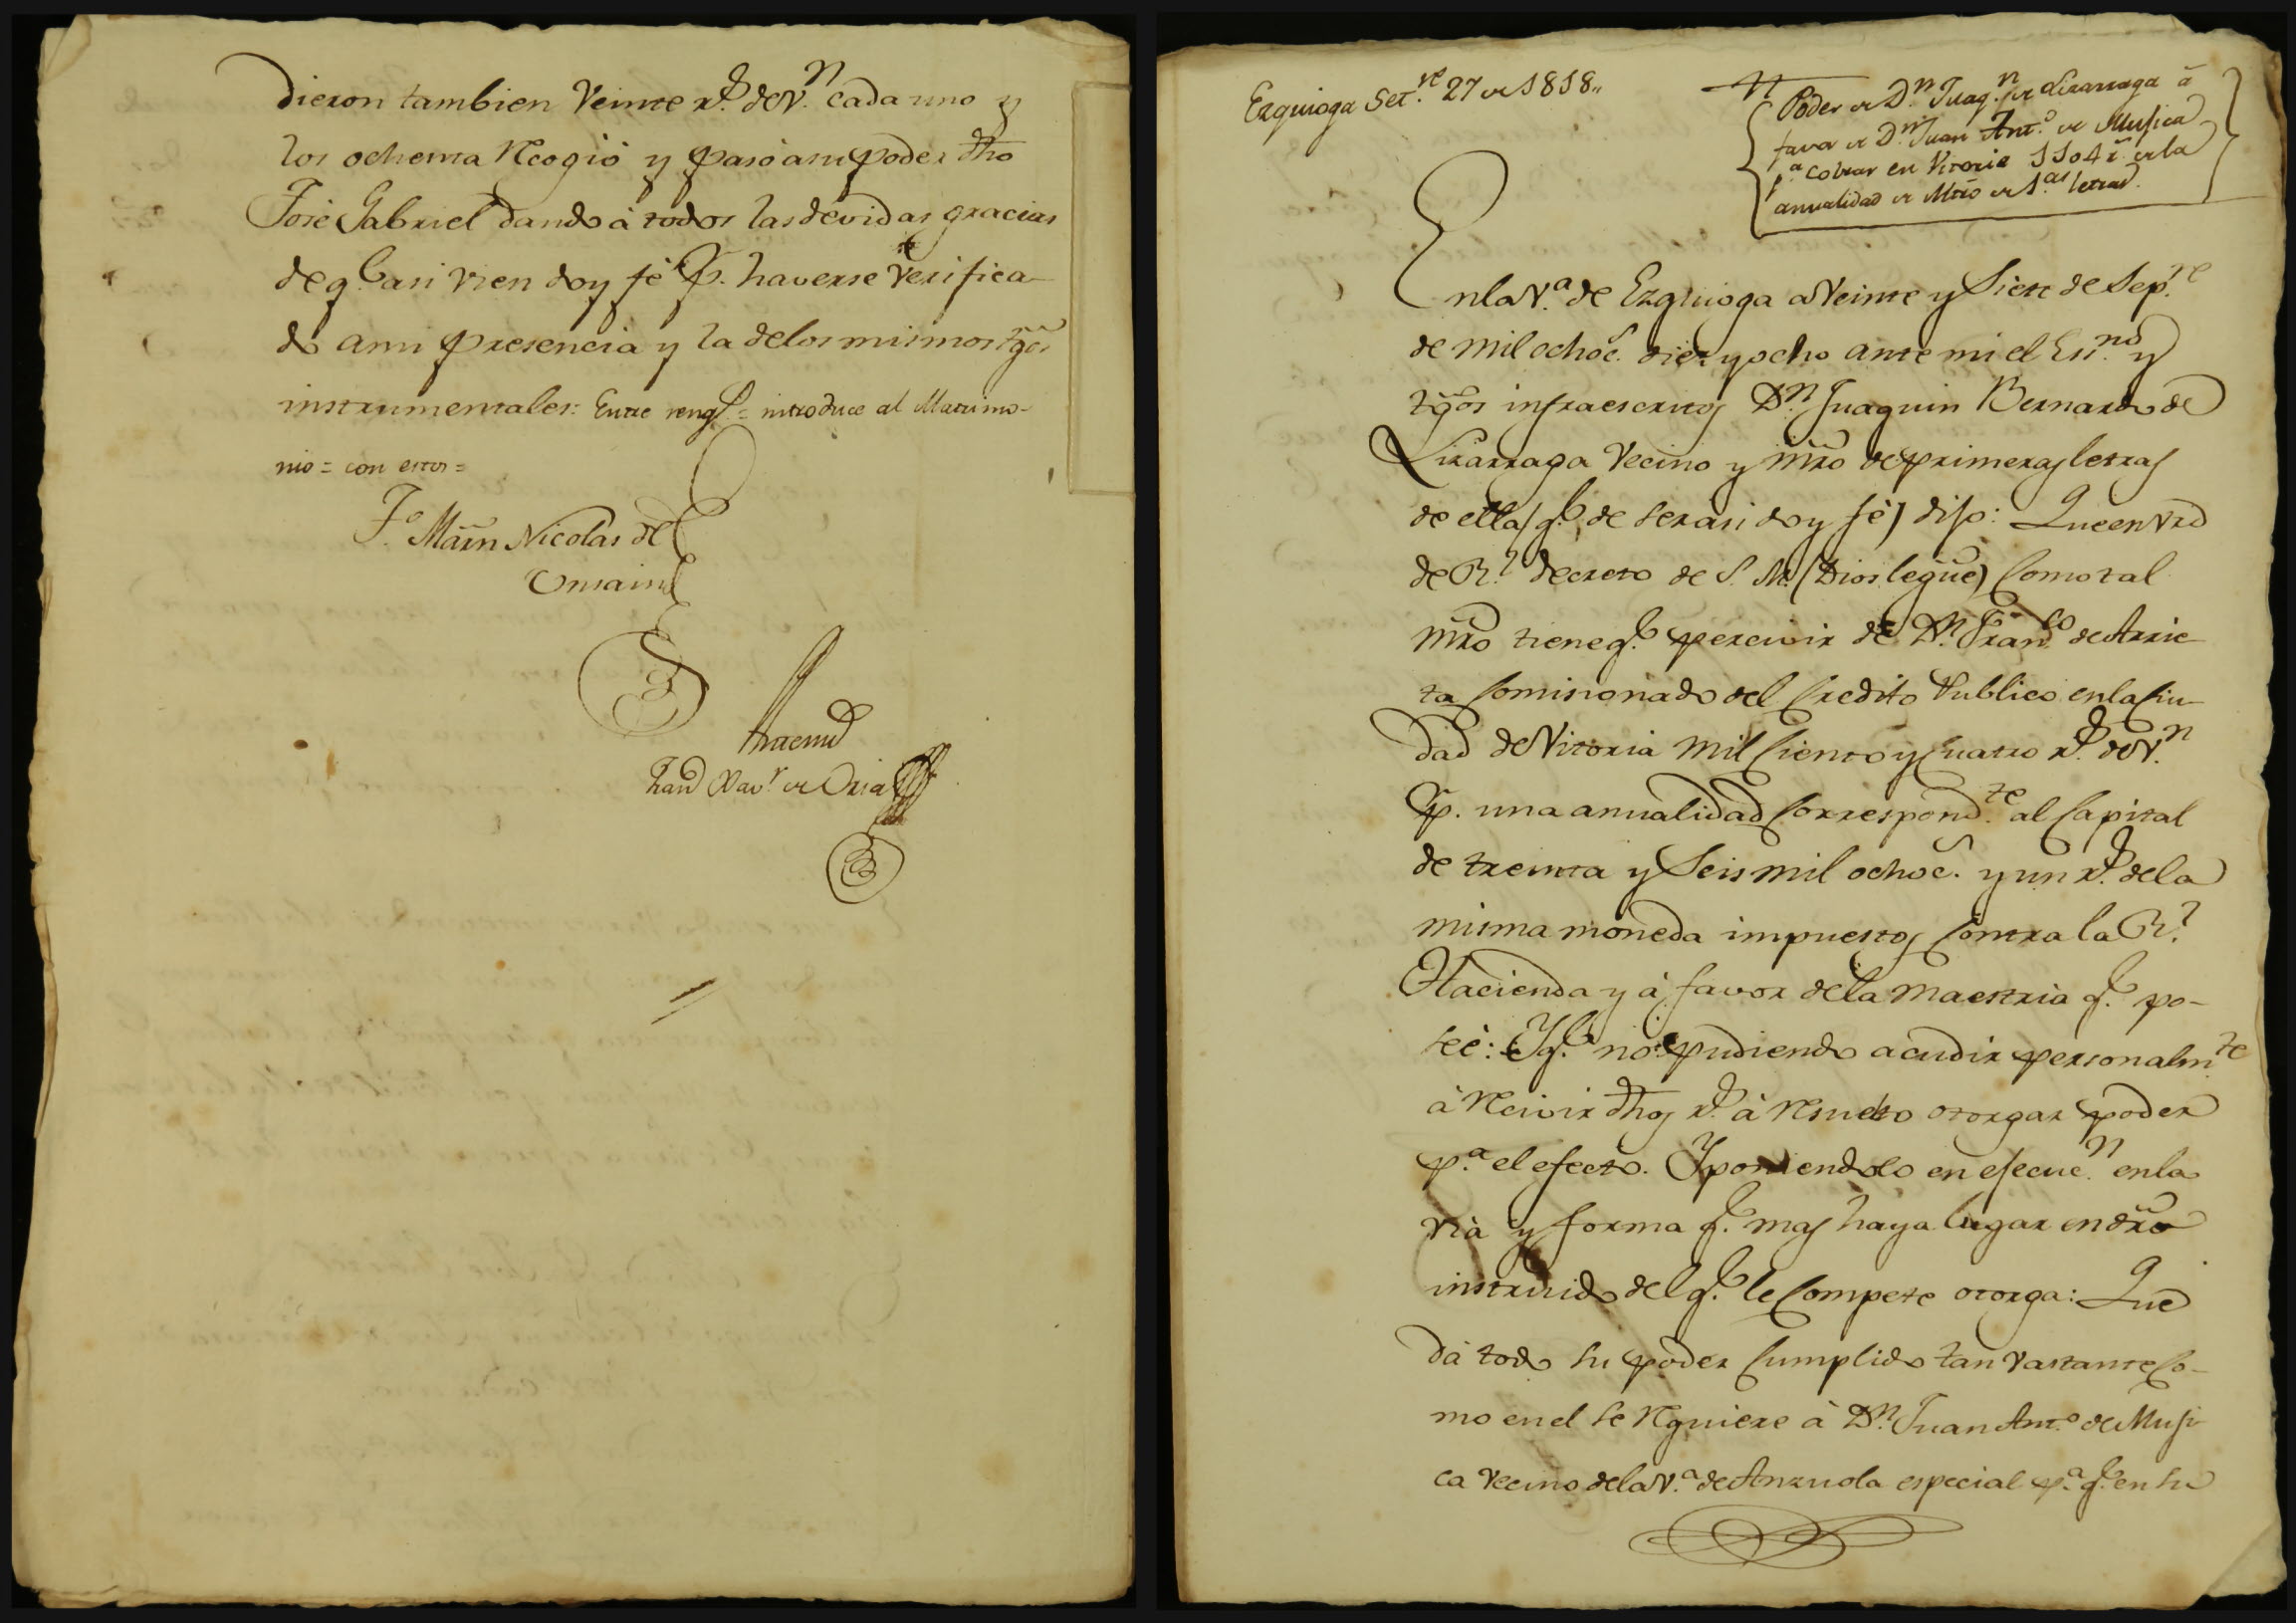 dieron tambien Veinte rs. de V.n cada uno y
los ochenta recogió y pasó a su poder dho
José Gabriel dando à todos las devidas gracias
de q.e asi vien doy fé p.r haverse verifica-
do a mi presencia y la de los mismos tgos
instrumentales: Entre rengs = introduce al Matrimo-
nio = con estos =
Martin Nicolas de
Antemi
Fran.co Xav.r de Oria
Ezquioga Set.re 27 de 1818,,
Poder de D.n Juaq.n de Lizarraga à
favor de D.n Juan Ant.o de Musica
p.a cobrar en Vitoria 1104 r.s de la
anualidad de Mtro de 1.as letras.
En la V.a de Ezquioga a Veinte y Siete de Sep.re
de mil ochoc.s diez y ocho ante mi el Es.no y
tgos infraescritos D.n Juaquin Bernardo de
Lizarraga Vecino y Mro de primeras letras
de ella (q.e de ser asi doy fé) dijo: Que en vrd
de R.l decreto de S. M. (Dios le gue) Como tal
Mro tiene q.e percivir de D.n Fran.co de Arrie-
ta Comisionado del Credito Publico en la Ciu-
dad de Vitoria mil Ciento y Cuatro rs. de V.n
p.r una anualidad Correspond.te al Capital
de treinta y Seis mil ochoc.s y un rs. de la
misma moneda impuestos Contra la R.l
Hacienda y à favor de la Maestria q.e po-
seé: Y q.e no pudiendo acudir personalm.te
à recivir dhos rs. à resuelto otorgar poder
p.a el efecto. Y poniendolo en ejecuc.n en la
via y forma q.e mas haya lugar en dro
instruido del q.e le Compete otorga: Que
dà todo su poder Cumplido tan vastante Co-
mo en el se requiere à D.n Juan Ant.o de Musi-
ca Vecino de la V.a de Anzuola especial p.a q.e en su